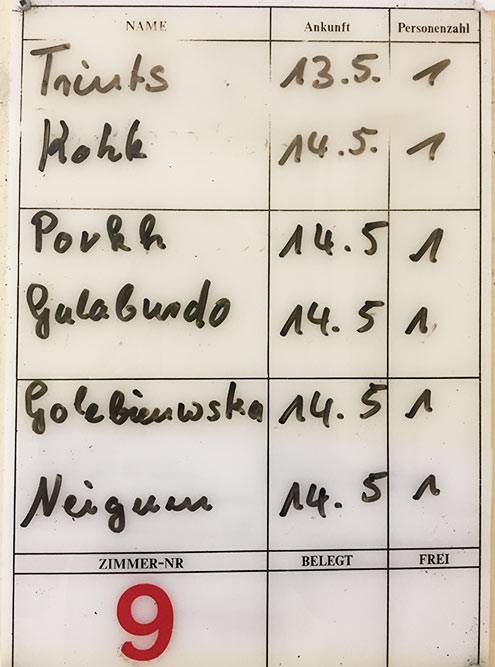 NAME Ankunft Personenzahl
Trints 13.5. 1
Kohk 14.5. 1
Porkh 14.5 1
Galabundo 14.5 1
Golebiewska 14.5 1
Neiguen 14.5 1
ZIMMER-NR BELEGT FREI
9